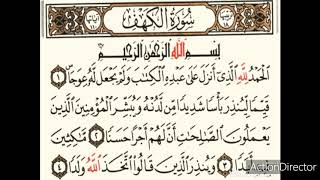 سُورَةُ الكَهْفِ
بِسْمِ اللَّهِ الرَّحْمَٰنِ الرَّحِيمِ
الْحَمْدُ لِلَّهِ الَّذِي أَنزَلَ عَلَىٰ عَبْدِهِ الْكِتَابَ وَلَمْ يَجْعَل لَّهُ عِوَجًا ١
قَيِّمًا لِّيُنذِرَ بَأْسًا شَدِيدًا مِّن لَّدُنْهُ وَيُبَشِّرَ الْمُؤْمِنِينَ الَّذِينَ
يَعْمَلُونَ الصَّالِحَاتِ أَنَّ لَهُمْ أَجْرًا حَسَنًا ٢ مَّاكِثِينَ
أَبَدًا ٣ وَيُنذِرَ الَّذِينَ قَالُوا اتَّخَذَ اللَّهُ وَلَدًا ٤
ActionDirector